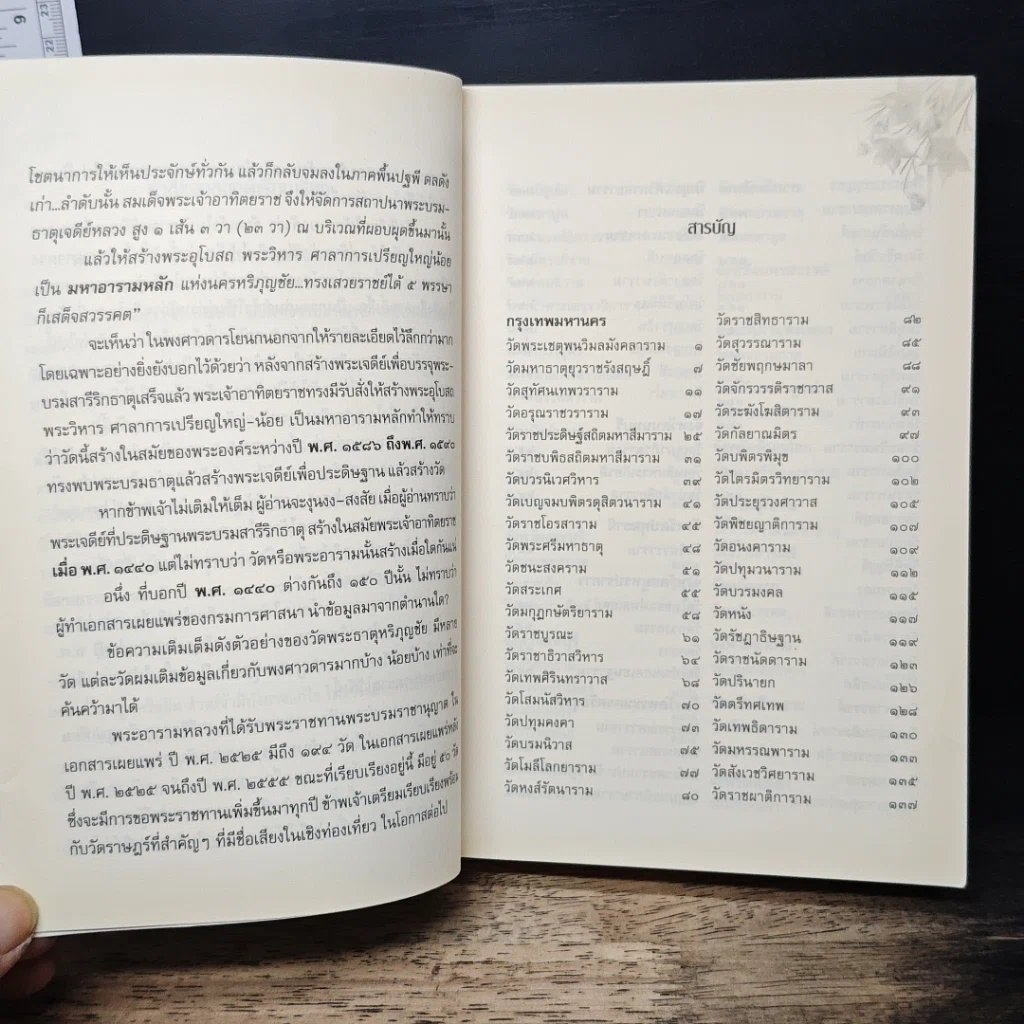 9
23
22
โชตนาการให้เห็นประจักษ์ทั่วกัน แล้วก็กลับจมลงในภาคพื้นปฐพี ดลดัง
เก่า...ลำดับนั้น สมเด็จพระเจ้าอาทิตยราช จึงให้จัดการสถาปนาพระบรม-
ธาตุเจดีย์หลวง สูง ๑ เส้น ๓ วา (๒๓ วา) ณ บริเวณที่ผอบผุดขึ้นมานั้น
แล้วให้สร้างพระอุโบสถ พระวิหาร ศาลาการเปรียญใหญ่น้อย
เป็น มหาอารามหลัก แห่งนครหริภุญชัย...ทรงเสวยราชย์ได้ ๕ พรรษา
ก็เสด็จสวรรคต"
จะเห็นว่า ในพงศาวดารโยนกนอกจากให้รายละเอียดไว้ลึกกว่ามาก
โดยเฉพาะอย่างยิ่งยังบอกไว้ด้วยว่า หลังจากสร้างพระเจดีย์เพื่อบรรจุพระ-
บรมสารีริกธาตุเสร็จแล้ว พระเจ้าอาทิตยราชทรงมีรับสั่งให้สร้างพระอุโบสถ
พระวิหาร ศาลาการเปรียญใหญ่-น้อย เป็นมหาอารามหลักทำให้ทราบ
ว่าวัดนี้สร้างในสมัยของพระองค์ระหว่างปี พ.ศ. ๑๕๘๖ ถึงพ.ศ. ๑๕๙๐
ทรงพบพระบรมธาตุแล้วสร้างพระเจดีย์เพื่อประดิษฐาน แล้วสร้างวัด
หากข้าพเจ้าไม่เติมให้เต็ม ผู้อ่านจะงุนงง-สงสัย เมื่อผู้อ่านทราบว่า
พระเจดีย์ที่ประดิษฐานพระบรมสารีริกธาตุ สร้างในสมัยพระเจ้าอาทิตยราช
เมื่อ พ.ศ. ๑๔๔๐ แต่ไม่ทราบว่า วัดหรือพระอารามนั้นสร้างเมื่อใดกันแน่
อนึ่ง ที่บอกปี พ.ศ. ๑๔๔๐ ต่างกันถึง ๑๕๐ ปีนั้น ไม่ทราบว่า
ผู้ทำเอกสารเผยแพร่ของกรมการศาสนา นำข้อมูลมาจากตำนานใด?
ข้อความเติมเต็มดังตัวอย่างของวัดพระธาตุหริภุญชัย มีหลาย
วัด แต่ละวัดผมเติมข้อมูลเกี่ยวกับพงศาวดารมากบ้าง น้อยบ้าง เท่าที่จะ
ค้นคว้ามาได้
พระอารามหลวงที่ได้รับพระราชทานพระบรมราชานุญาต ใน
เอกสารเผยแพร่ ปี พ.ศ. ๒๕๒๕ มีถึง ๑๙๔ วัด ในเอกสารเผยแพร่หลัง
ปี พ.ศ. ๒๕๒๕ จนถึงปี พ.ศ. ๒๕๕๕ ขณะที่เรียบเรียงอยู่นี้ มีอยู่ ๕๐ วัด
ซึ่งจะมีการขอพระราชทานเพิ่มขึ้นมาทุกปี ข้าพเจ้าเตรียมเรียบเรียงพร้อม
กับวัดราษฎร์ที่สำคัญๆ ที่มีชื่อเสียงในเชิงท่องเที่ยว ในโอกาสต่อไป
สารบัญ
กรุงเทพมหานคร
วัดพระเชตุพนวิมลมังคลาราม ๑
วัดมหาธาตุยุวราชรังสฤษฎิ์ ๗
วัดสุทัศนเทพวราราม ๑๑
วัดอรุณราชวราราม ๑๗
วัดราชประดิษฐ์สถิตมหาสีมาราม ๒๕
วัดราชบพิธสถิตมหาสีมาราม ๓๑
วัดบวรนิเวศวิหาร ๓๙
วัดเบญจมบพิตรดุสิตวนาราม ๔๑
วัดราชโอรสาราม ๔๕
วัดพระศรีมหาธาตุ ๔๘
วัดชนะสงคราม ๕๑
วัดสระเกศ ๕๕
วัดมกุฏกษัตริยาราม ๕๘
วัดราชบูรณะ ๖๑
วัดราชาธิวาสวิหาร ๖๔
วัดเทพศิรินทราวาส ๖๘
วัดโสมนัสวิหาร ๗๐
วัดปทุมคงคา ๗๓
วัดบรมนิวาส ๗๕
วัดโมลีโลกยาราม ๗๗
วัดหงส์รัตนาราม ๘๐
วัดราชสิทธาราม ๘๒
วัดสุวรรณาราม ๘๕
วัดชัยพฤกษมาลา ๘๘
วัดจักรวรรดิราชาวาส ๙๑
วัดระฆังโฆสิตาราม ๙๓
วัดกัลยาณมิตร ๙๗
วัดบพิตรพิมุข ๑๐๐
วัดไตรมิตรวิทยาราม ๑๐๒
วัดประยุรวงศาวาส ๑๐๕
วัดพิชยญาติการาม ๑๐๗
วัดอนงคาราม ๑๐๙
วัดปทุมวนาราม ๑๑๒
วัดบวรมงคล ๑๑๕
วัดหนัง ๑๑๗
วัดรัชฎาธิษฐาน ๑๑๙
วัดราชนัดดาราม ๑๒๓
วัดปรินายก ๑๒๖
วัดตรีทศเทพ ๑๒๘
วัดเทพธิดาราม ๑๓๐
วัดมหรรณพาราม
วัดสังเวชวิศยาราม ๑๓๕
วัดราชผาติการาม ๑๓๗